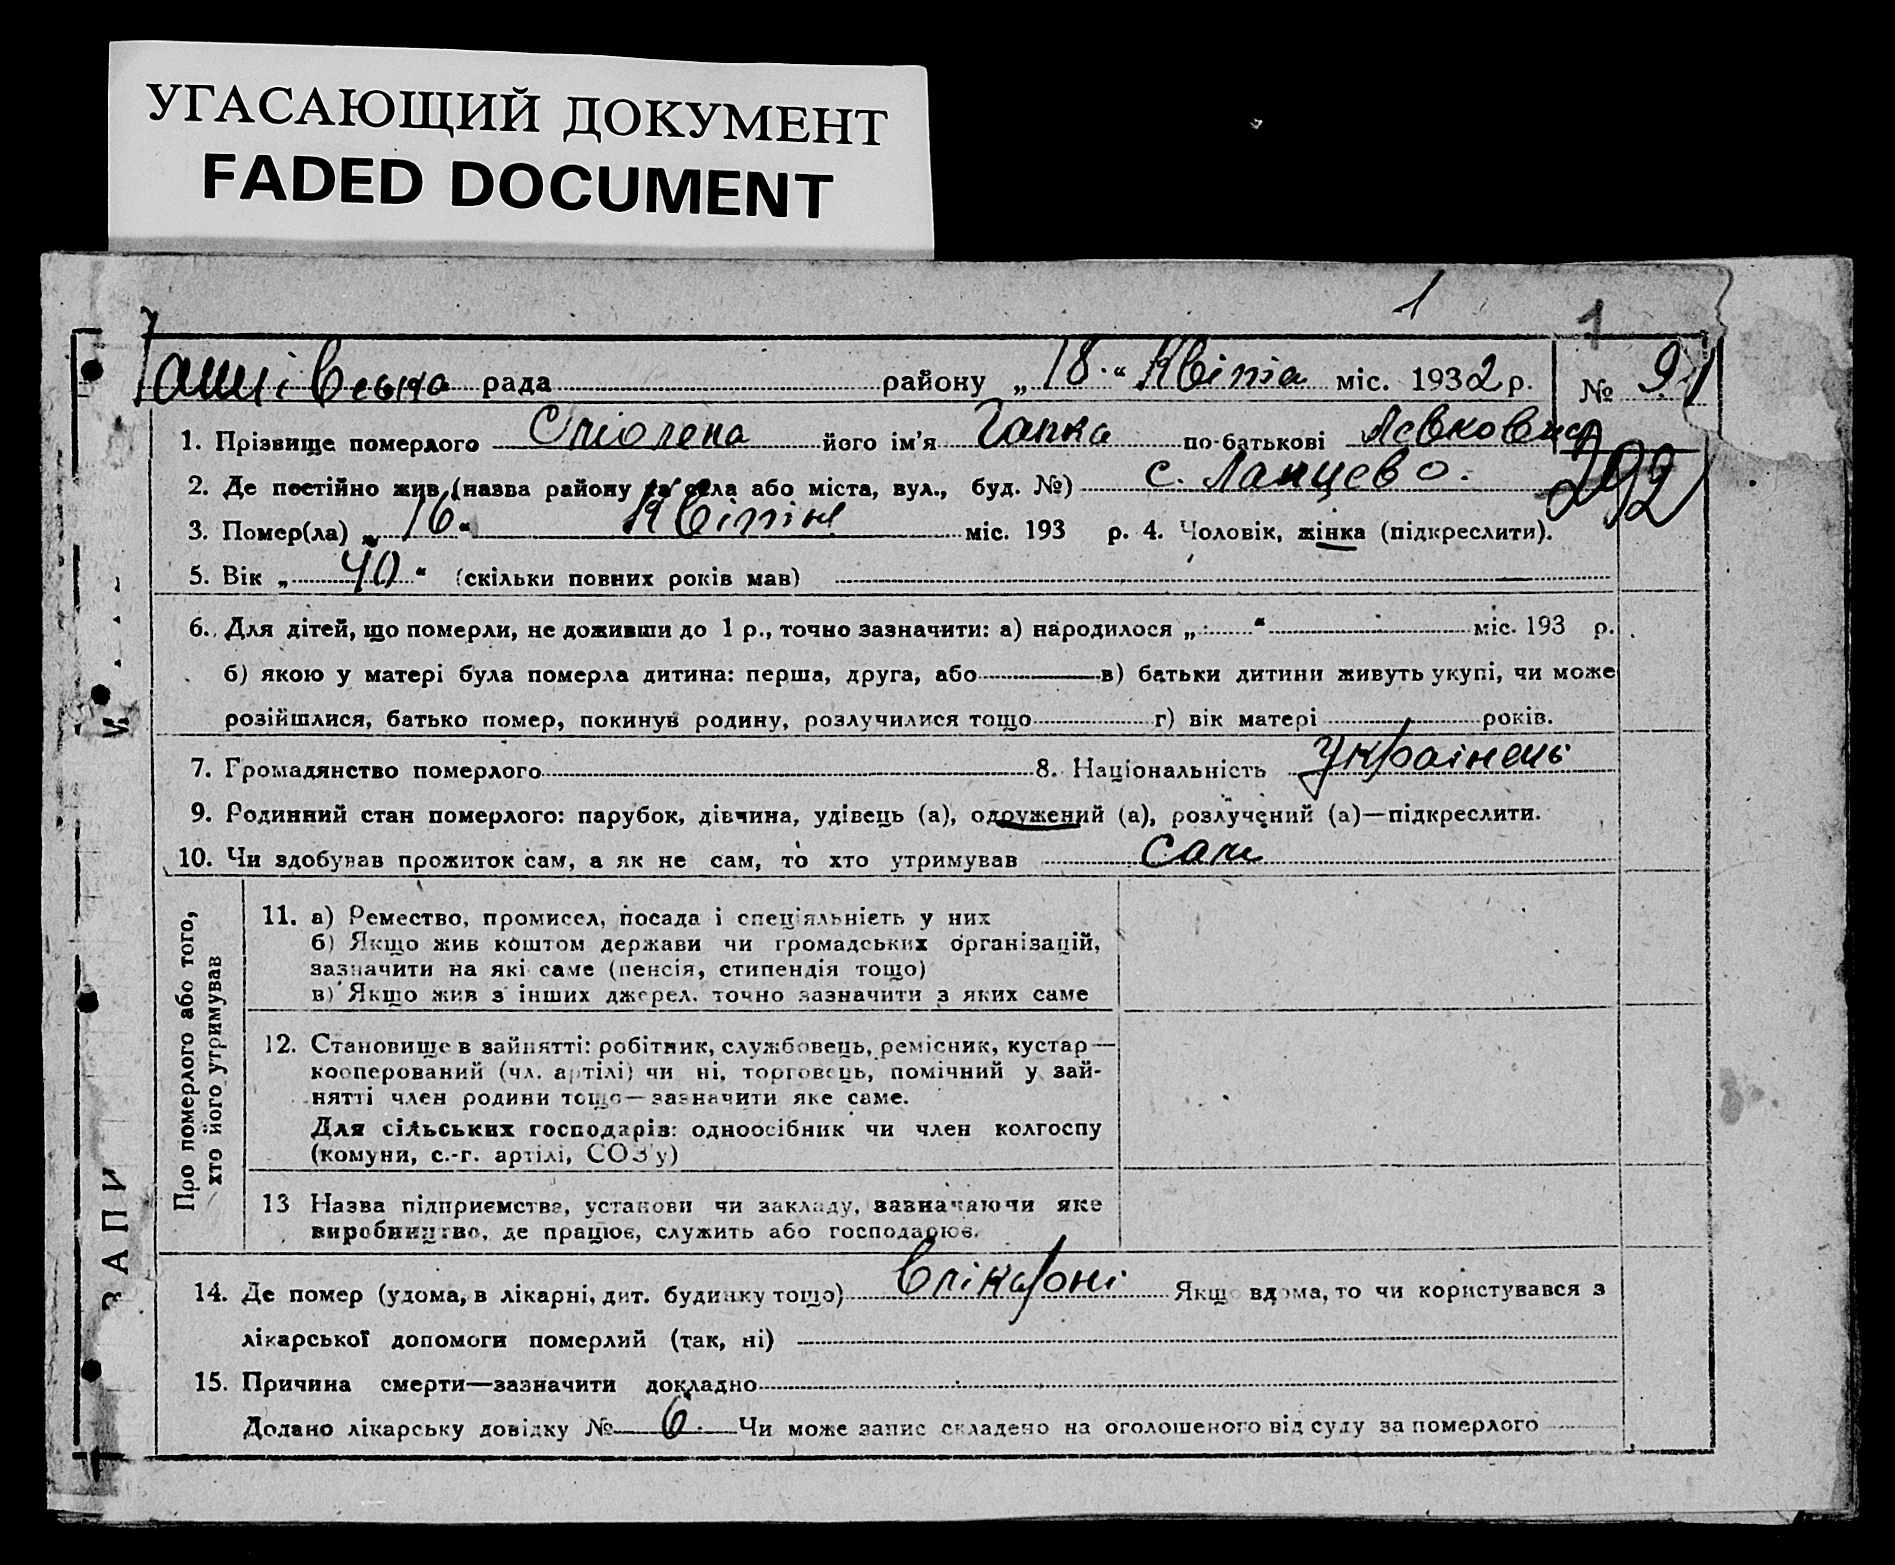 УГАСАЮЩИЙ ДОКУМЕНТ
FADED DOCUMENT
1
1
рада району „ 18 “ Квітня міс. 1932 р. №
1. Прізвище померлого його ім'я Гапка по-батькові Левковна
292
2. Де постійно жив (назва району та села або міста, вул., буд. №) с. Ланцево.
3. Помер(ла) „ 16 “ Квітня міс. 193 р. 4. Чоловік, жінка (підкреслити).
5. Вік „ 40 “ (скільки повних років мав)
6. Для дітей, що померли, не доживши до 1 р., точно зазначити: а) народилося „ “ міс. 193 р.
б) якою у матері була померла дитина: перша, друга, або в) батьки дитини живуть укупі, чи може
розійшлися, батько помер, покинув родину, розлучилися тощо г) вік матері років.
7. Громадянство померлого 8. Національність Українець
9. Родинний стан померлого: парубок, дівчина, удівець (а), одружений (а), розлучений (а)—підкреслити.
10. Чи здобував прожиток сам, а як не сам, то хто утримував Сам
Про померлого або того,
хто його утримував
11. а) Ремество, промисел, посада і спеціяльність у них
б) Якщо жив коштом держави чи громадських організацій,
зазначити на які саме (пенсія, стипендія тощо)
в) Якщо жив з інших джерел, точно зазначити з яких саме
12. Становище в зайнятті: робітник, службовець, ремісник, кустар—
кооперований (чл. артілі) чи ні, торговець, помічний у зай-
нятті член родини тощо—зазначити яке саме.
Для сільських господарів: одноосібник чи член колгоспу
(комуни, с.-г. артілі, СОЗ'у)
13 Назва підприємства, установи чи закладу, зазначаючи яке
виробництво, де працює, служить або господарює.
14. Де помер (удома, в лікарні, дит. будинку тощо) Якщо вдома, то чи користувався з
лікарської допомоги померлий (так, ні)
15. Причина смерти—зазначити докладно
Додано лікарську довідку № 6 Чи може запис складено на оголошеного від суду за померлого
ЗАПИ